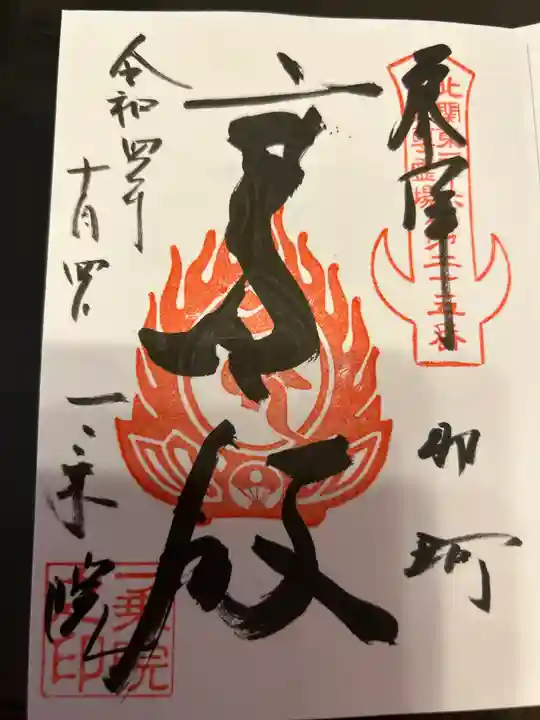 奉拝
北関東三十六不動尊霊場第二十五番
那珂
令和四年
十月四日
一乗院
一乗院之印